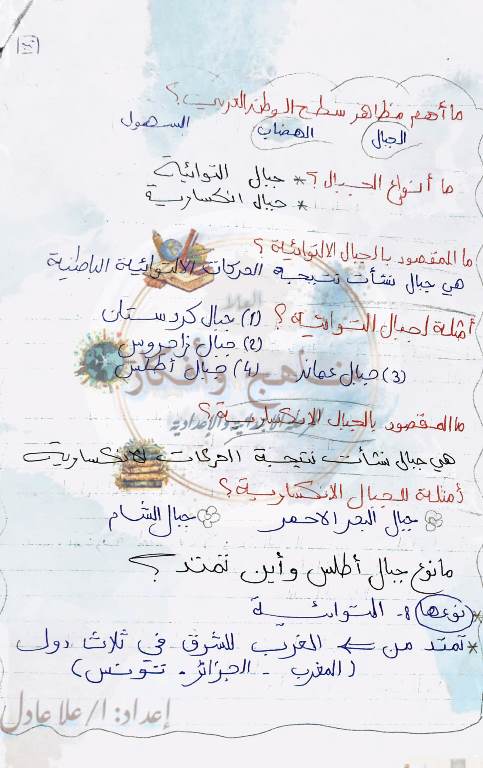 ما أهم مظاهر سطح الوطن العربي؟
الجبال الهضاب السهول
ما أنواع الجبال؟ * جبال التوائية
* جبال انكسارية
ما المقصود بالجبال الالتوائية؟
هي جبال نشأت نتيجة الحركات الالتوائية الباطنية
أمثلة لجبال التوائية؟ (1) جبال كردستان
(2) جبال زاجروس
(3) جبال عمان (4) جبال أطلس
ما المقصود بالجبال الانكسارية؟
هي جبال نشأت نتيجة الحركات الانكسارية
أمثلة للجبال الانكسارية؟
جبال البحر الاحمر جبال الشام
ما نوع جبال أطلس وأين تمتد؟
* نوعها :- التوائية
* تمتد من ← المغرب للشرق في ثلاث دول
(المغرب - الجزائر - تتونس)
إعداد: أ/علا عادل